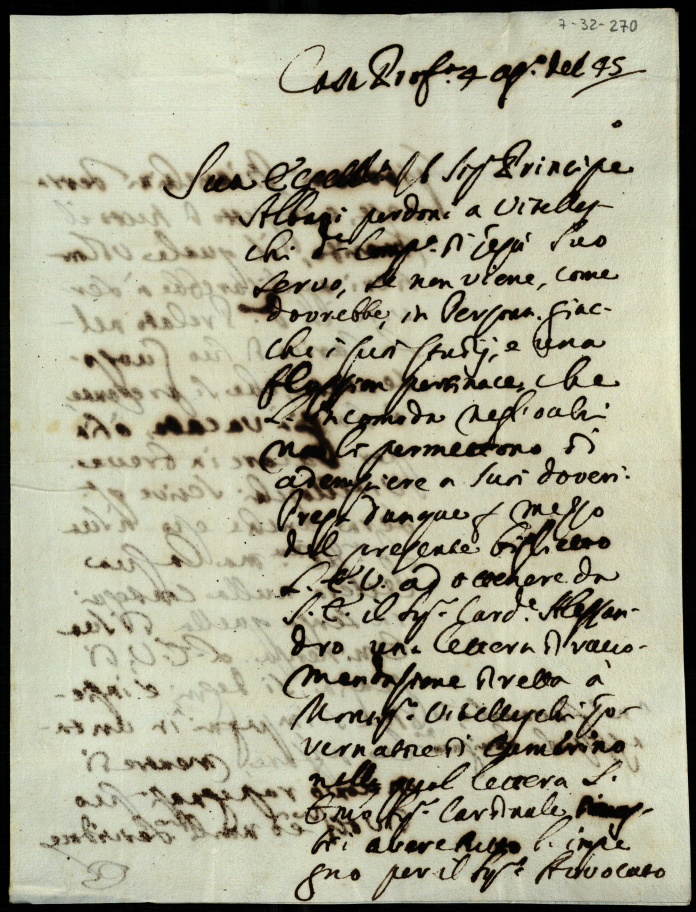 7-32-270
Casa Prof.ª 4 ap.e del 45
Sua Eccellza il Sig.r Principe
Albani perdoni a Vitelles-
chi d. Comp.ª di Gesù suo
servo, se non viene, come
dovrebbe, in Person. giac-
chè i suoi studij, e una
flussion pertinace, che
l'incomoda negl'occhi
non li permettono di
adempiere a suoi doveri.
Prega dunque p mezzo
del presente biglietto
L'E.V. ad ottenere da
S. E. il Sig.r Card.e Alessan-
dro una lettera di racco-
mandazione diretta à
Mons.r Vitelleschi Go-
vernatore di Camerino
nella qual lettera S.
Em.ª il Sig.r Cardinale
avere tutto l'impe
gno per il Sig.r Avvocato